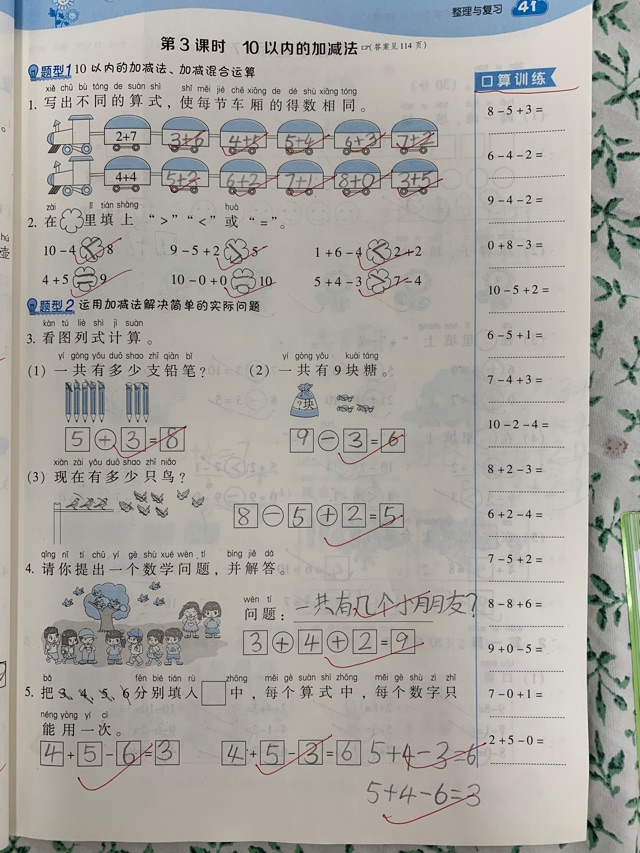 整理与复习 41
第3课时 10以内的加减法 (答案见114页)
题型1 10以内的加减法、加减混合运算
xiě chū bù tóng de suàn shì shǐ měi jié chē xiāng de dé shù xiāng tóng
1. 写出不同的算式，使每节车厢的得数相同。
2+7 3+6 4+5 5+4 6+3 7+2
4+4 5+3 6+2 7+1 8+0 3+5
zài lǐ tián shàng huò
2. 在 里填上“>”“<”或“=”。
10-4 < 8 9-5+2 > 5 1+6-4 < 2+2
4+5 = 9 10-0+0 = 10 5+4-3 > 7-4
题型2 运用加减法解决简单的实际问题
kàn tú liè shì jì suàn
3. 看图列式计算。
yí gòng yǒu duō shao zhī qiān bǐ yí gòng yǒu kuài táng
(1) 一共有多少支铅笔? (2) 一共有9块糖。
?块
5+3=8 9-3=6
xiàn zài yǒu duō shao zhī niǎo
(3) 现在有多少只鸟?
8-5+2=5
qǐng nǐ tí chū yí gè shù xué wèn tí bìng jiě dá
4. 请你提出一个数学问题，并解答。
wèn tí
问题: 一共有几个小朋友?
3+4+2=9
bǎ fēn bié tián rù zhōng měi gè suàn shì zhōng měi gè shù zì zhǐ
5. 把3、4、5、6分别填入□中，每个算式中，每个数字只
néng yòng yí cì
能用一次。
4+5-6=3 4+5-3=6 5+4-3=6
5+4-6=3
口算训练
8-5+3=
6-4-2=
9-4-2=
0+8-3=
10-5+2=
6-5+1=
7-4+3=
10-2-4=
8+2-3=
6+2-4=
7-5+2=
8-8+6=
9+0-5=
7-0+1=
2+5-0=